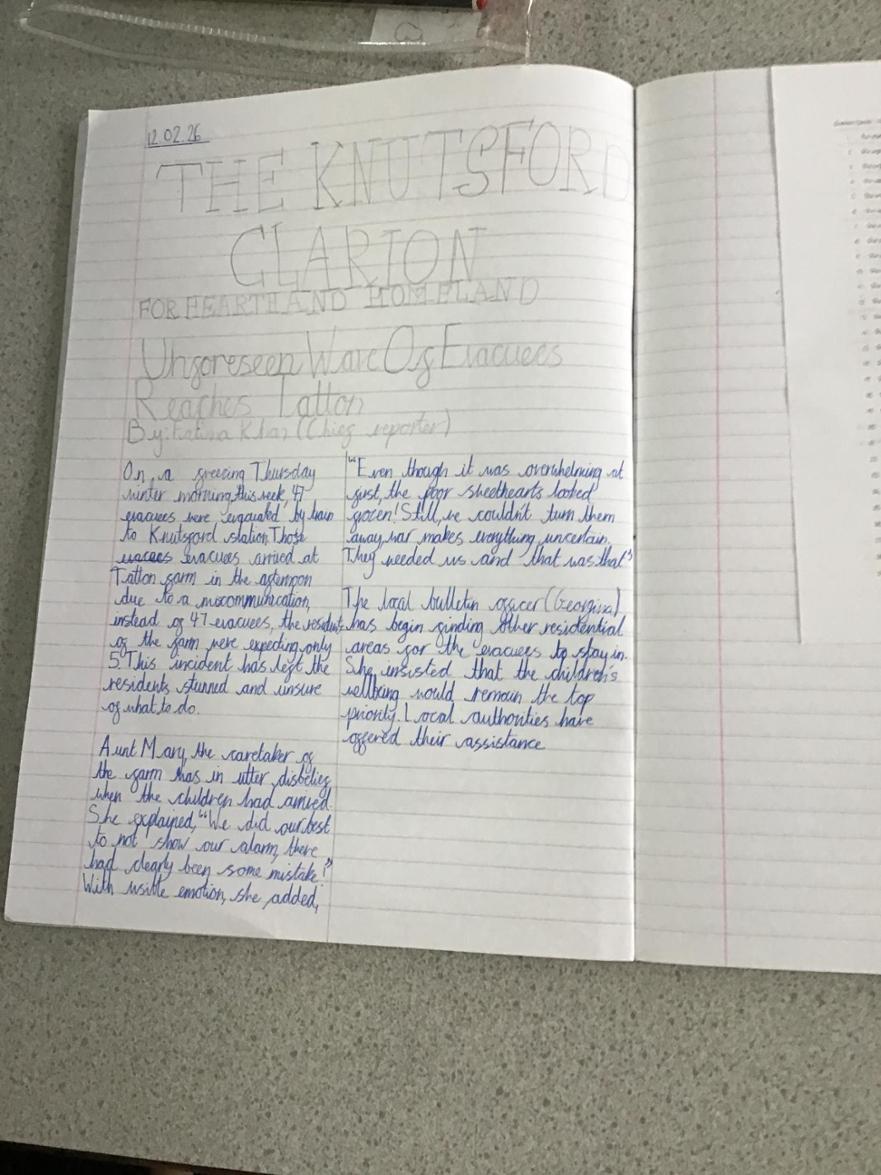 12.02.26
THE KNUTSFORD
CLARION
FOR HEARTH AND HOMELAND
Unforeseen Wave Of Evacuees
Reaches Tatton
By: Fatima Khan (Chief reporter)
On, a freezing Thursday
winter morning, this week, 47
evacuees were, evacuated, by train
to Knutsford station. Those
evacees evacuees arrived at
Tatton farm in the afternoon
due to a miscommunication,
instead of 47 evacuees, the residents
of the farm were expecting only
5. This incident has left the
residents stunned and unsure
of what to do.
Aunt Mary, the caretaker of
the farm was in utter disbelief
when the children had arrived.
She explained, "We did our best
to not show our alarm, there
had clearly been some mistake!"
With visible emotion, she added,
"Even though it was overwhelming at
first, the poor sweethearts looked
frozen! Still, we couldn't turn them
away, war makes everything uncertain.
They needed us and that was that"
The local bulletin officer (Georgina)
has begin finding other residential
areas for the evacuees to stay in.
She insisted that the children's
wellbeing would remain the top
priority. Local authorities have
offered their assistance